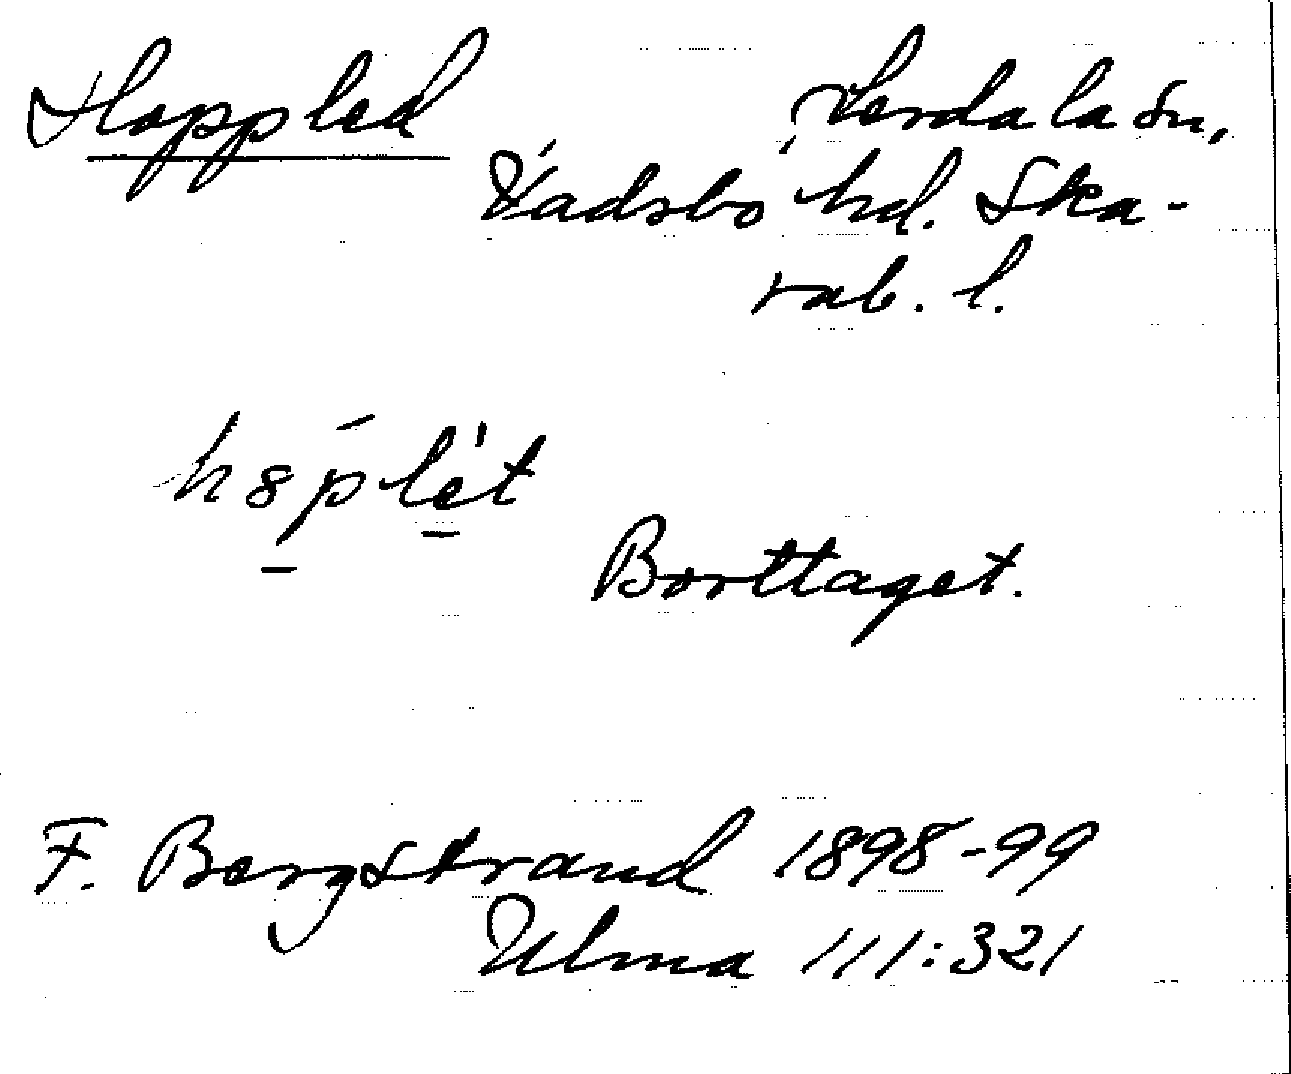 Hoppled Lerdala sn,
Vadsbo hd. Ska-
rab. l.
Borttaget.
F. Bergstrand 1898-99
Ulma 111:321